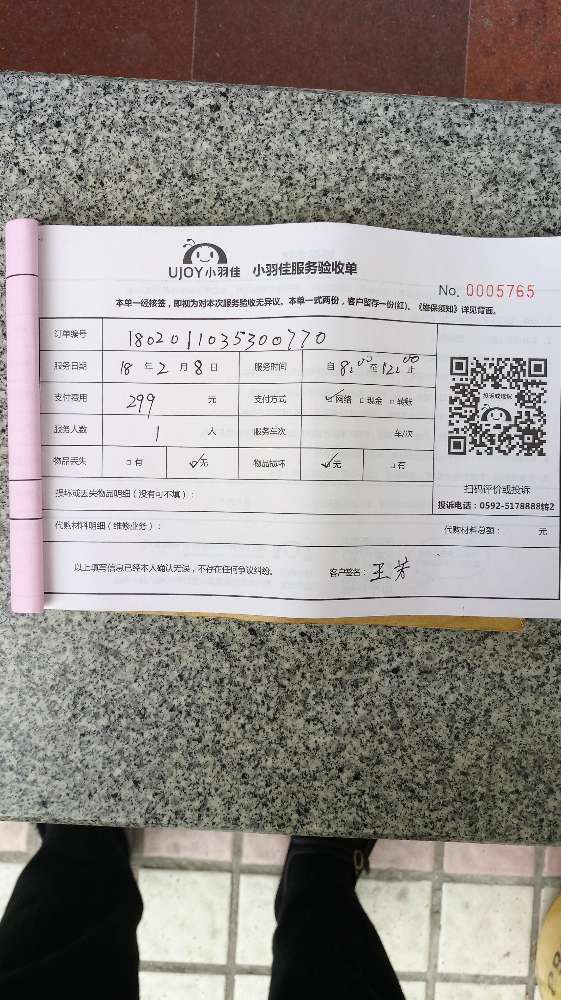 UJOY小羽佳 小羽佳服务验收单
No. 0005765
本单一经核签，即视为对本次服务验收无异议。本单一式两份，客户留存一份(红)。《维保须知》详见背面。
订单编号 1802011035300770
服务日期 18 年 2 月 8 日 服务时间 自 8:00 至 12:00 止
支付费用 299 元 支付方式 ☑网络 □现金 □转账
服务人数 1 人 服务车次 车/次
物品丢失 □有 ☑无 物品损坏 ☑无 □有
投诉或建议
扫码评价或投诉
投诉电话：0592-5178888转2
损坏或丢失物品明细（没有可不填）：
代购材料明细（维修业务）： 代购材料总额： 元
以上填写信息已经本人确认无误，不存在任何争议纠纷。 客户签名：王芳